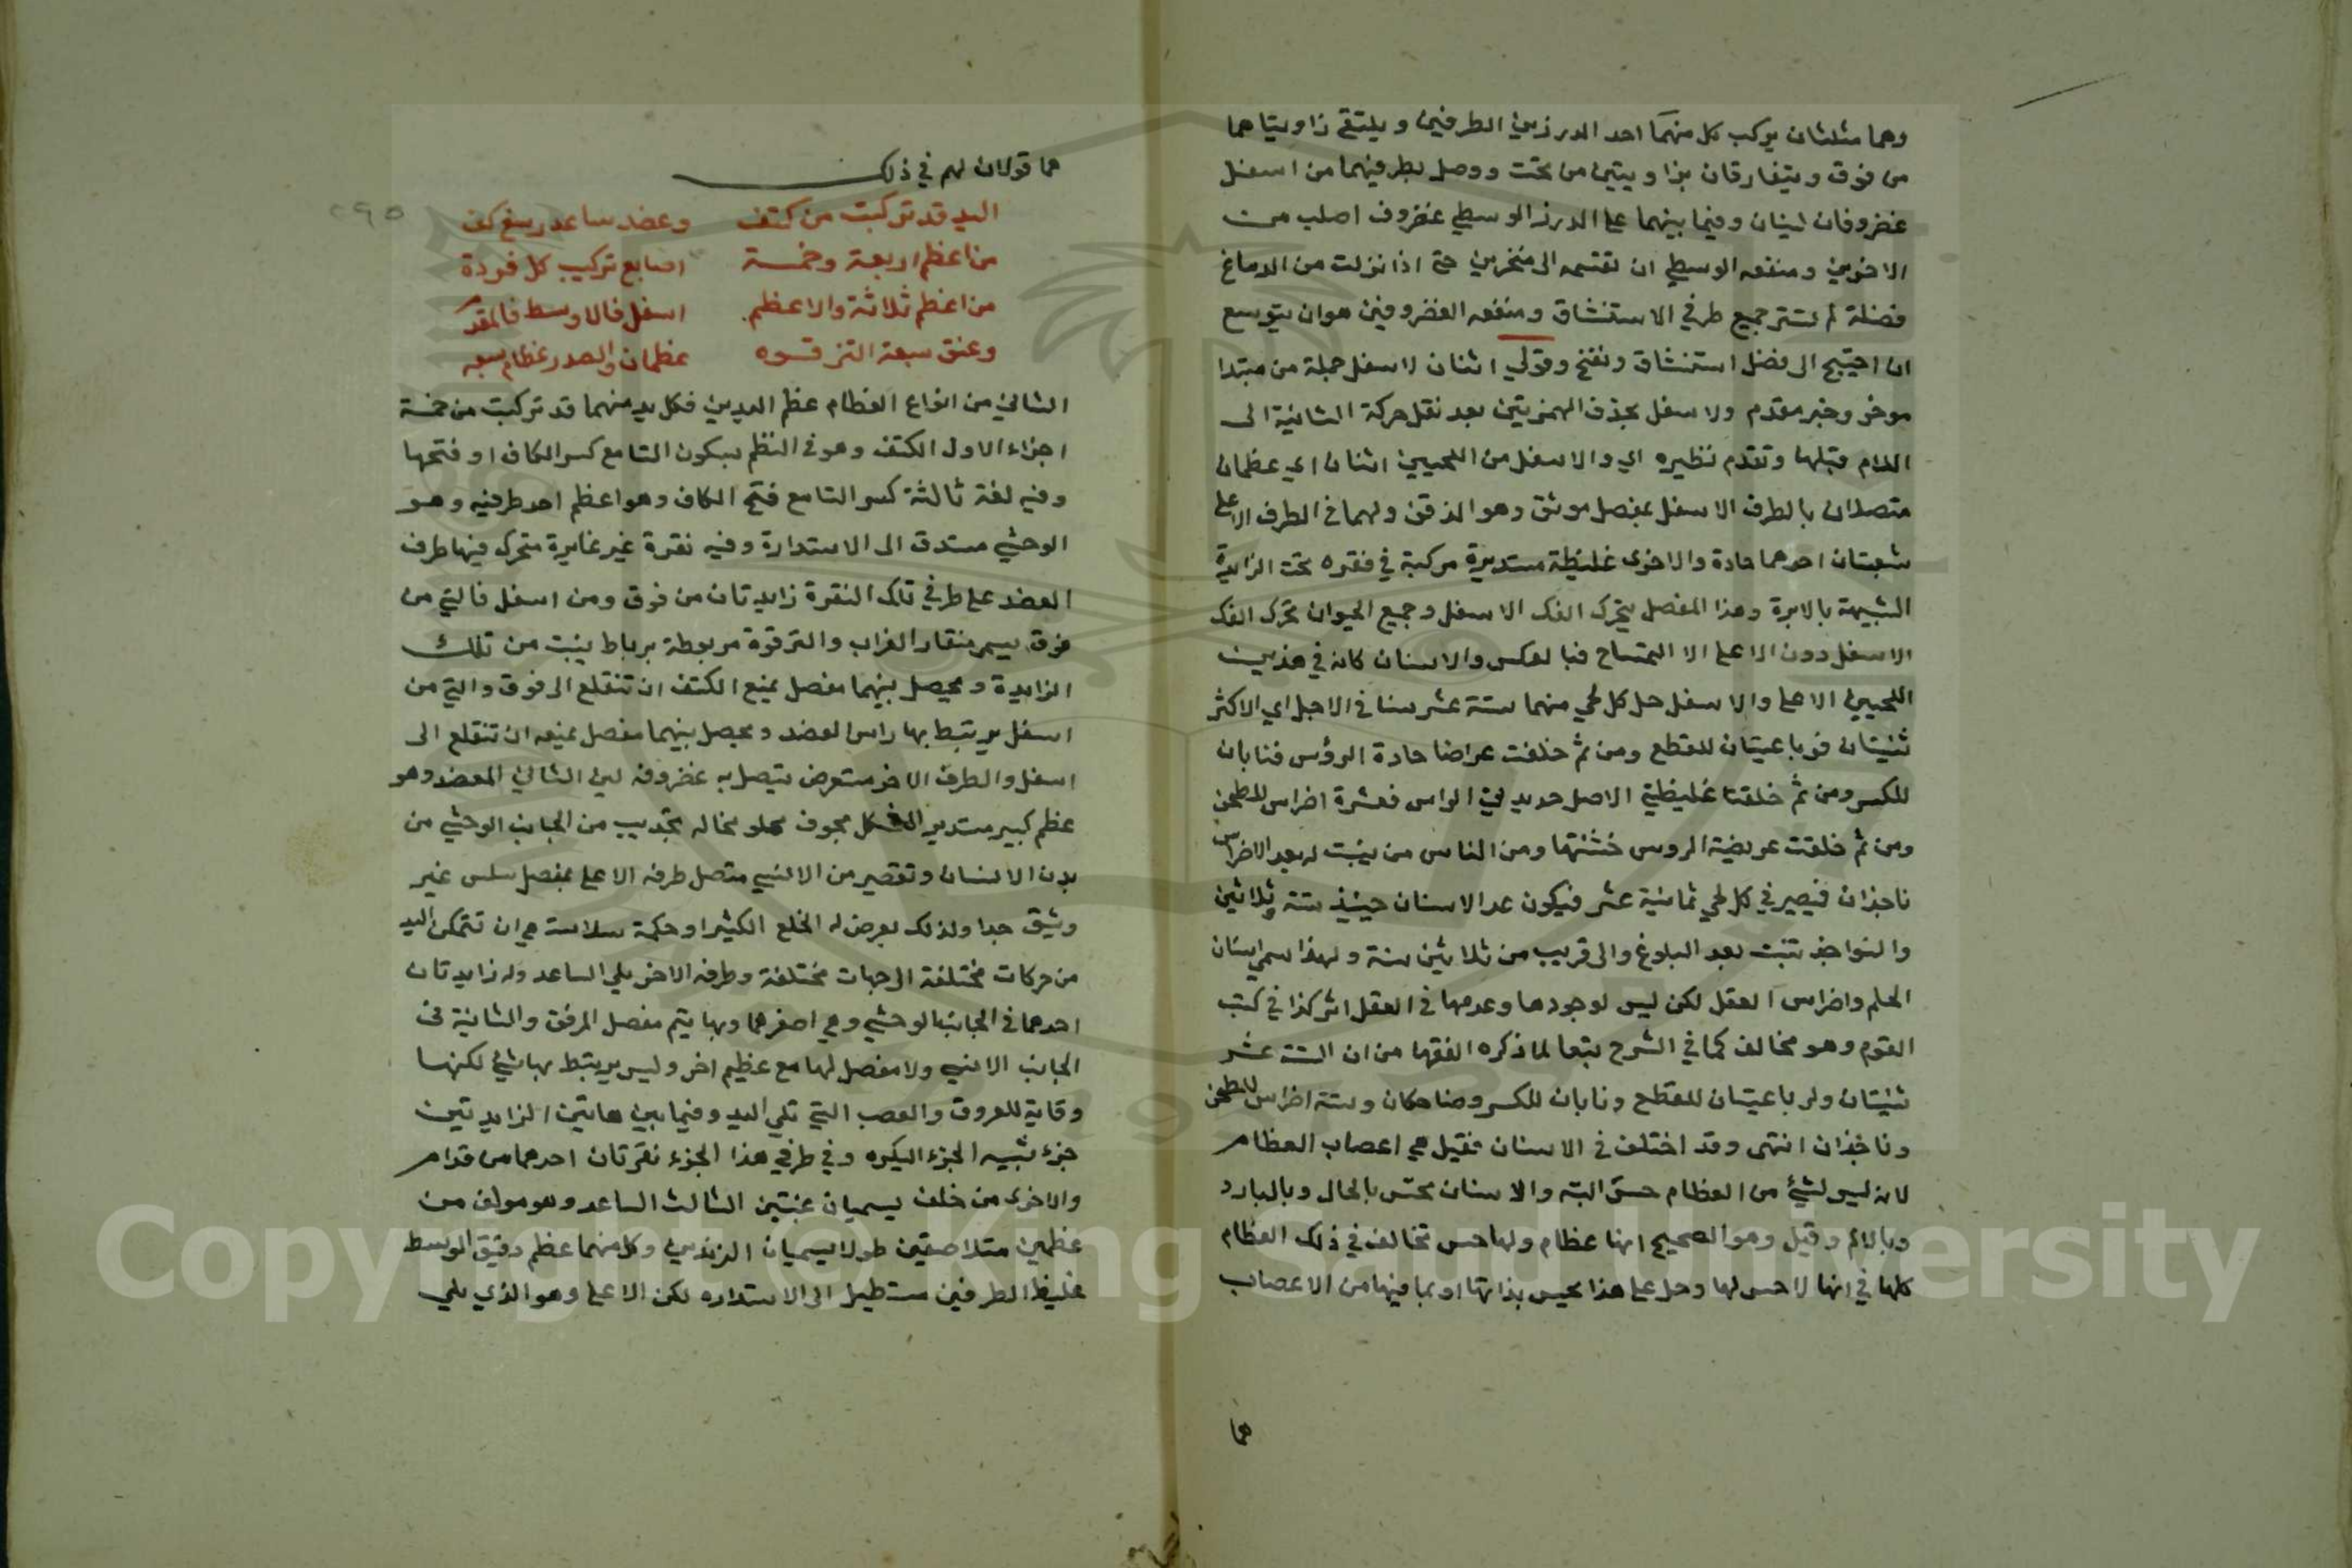 وهما مثلثان يركب كل منهما احد الدرزين الطرفين و يلتقي زاويتاهما
من فوق ويتفارقان بزاويتين من تحت ووصل بطرفيهما من اسفل
غضروفان لينان وفيما بينهما على الدرز الوسطي غضروف اصلب من
الاخرين ومنفعه الوسطي ان تقسمه الى منخرين حتى اذا نزلت من الدماغ
فضلة لم تستر جميع طرفي الاستنشاق ومنفعه الغضروفين هو ان يتوسع
ان احتيج الى فضل استنشاق ونفخ وقولي اثنان لاسفل جملة من مبتدا
موخر وخبر مقدم ولاسفل بحذف الهمزيتين بعد نقل حركة الثانية الى
اللام قبلها وتقدم نظيره اي والاسفل من اللحيين اثنان اي عظمان
متصلان بالطرف الاسفل بمفصل موثق وهو الذقن ولهما في الطرف الاعلى
شعبتان احدهما حادة والاخرى غليظة مستديرة مركبة في فقره تحت الزايدة
الشبيهة بالابرة وهذا المفصل يتحرك الفك الاسفل وجميع الحيوان تحرك الفك
الاسفل دون الاعلى الا التمساح فبالعكس والاسنان كانه في هذين
اللحيين الاعلى والاسفل حل كل لحي منهما ستة عشر سنا في الاجل اي الاكثر
ثنيتان فرباعيتان للقطع ومن ثم خلقت عراضا حادة الرؤس فنابان
للكسر ومن ثم خلقتا غليظتي الاصل حديدتي الراس فعشرة اضراس للطحن
ومن ثم خلقت عريضة الروس خشنتها ومن الناس من ينبت له بعد الاضراس
ناجذان فيصير في كل لحي ثمانية عشر فيكون عدد الاسنان حينئذ ستة وثلاثين
والنواجذ تنبت بعد البلوغ والى قريب من ثلاثين سنة ولهذا سمي اسنان
الحلم واضراس العقل لكن ليس لوجودها وعدمها في العقل اثر كذا في كتب
القوم وهو مخالف كما في الشرح تبعا لما ذكره الفقها من ان الستة عشر
ثنيتان ورباعيتان للقطع ونابان للكسر وضاحكان وستة اضراس للطحن
وناجذان انتهى وقد اختلف في الاسنان فقيل هي اعصاب العظام
لانه ليس لشيء من العظام حس البته والاسنان تحس بالحال وبالبارد
وبالالم وقيل وهو الصحيح انها عظام ولها حس تخالف في ذلك العظام
كلها في انها لا حس لها وحل على هذا يحس بذاتها او بما فيها من الاعصاب
هما
هما قولان لهم في ذلك
٢٩٥
اليد قد تركبت من كتف وعضد ساعد رسغ كف
من اعظم اربعة وخمسة اصابع تركيب كل فردة
من اعظم ثلاثة والاعظم اسفل فالاوسط فالمقدم
وعنق سبعة الترقوه عظمان والصدر عظام سبعه
الثاني من انواع العظام عظم اليدين فكل يد منهما قد تركبت من خمسة
اجزاء الاول الكتف وهو في النظم بسكون التا مع كسر الكاف او فتحها
وفيه لغة ثالثة كسر التا مع فتح الكاف وهو اعظم احد طرفيه وهو
الوحشي مستدق الى الاستدارة وفيه نقرة غير غايرة متحرك فيها طرف
العضد على طرفي تلك النقرة زايدتان من فوق ومن اسفل فالتي من
فوق يسمى منقار الغراب والترقوة مربوطة برباط ينبت من تلك
الزايدة ويحصل بينهما مفصل يمنع الكتف ان تنقلع الى فوق والتي من
اسفل يرتبط بها راس العضد ويحصل بينهما مفصل يمنعه ان تنقلع الى
اسفل والطرف الاخر مستعرض يتصل به غضروفه لين الثاني العضد وهو
عظم كبير مستدير الشكل مجوف مملو مخا له تحديب من الجانب الوحشي من
بدن الانسان وتقصير من الانسي متصل طرفه الاعلى بمفصل سلس غير
وثيق جدا ولذلك يعرض له الخلع الكثير او حكمة سلاسته هي ان تتمكن اليد
من حركات مختلفة الى جهات مختلفة وطرفه الاخر يلي الساعد وله زايدتان
احدهما في الجانب الوحشي وهي اصغرهما وبها يتم مفصل المرفق والثانية في
الجانب الانسي ولا مفصل لها مع عظم اخر وليس يرتبط بها شي لكنها
وقاية للعروق والعصب التي تلي اليد وفيما بين هاتين الزايدتين
جزء شبيه الجزء البكره وفي طرفي هذا الجزء نقرتان احدهما من قدام
والاخرى من خلف يسميان عنبتين الثالث الساعد وهو مولف من
عظمين متلاصقين طولا يسميان الزندين وكل منهما عظم دقيق الوسط
غليظ الطرفين مستطيل الى الاستداره لكن الاعلى وهو الذي يلي
Copyright © King Saud University